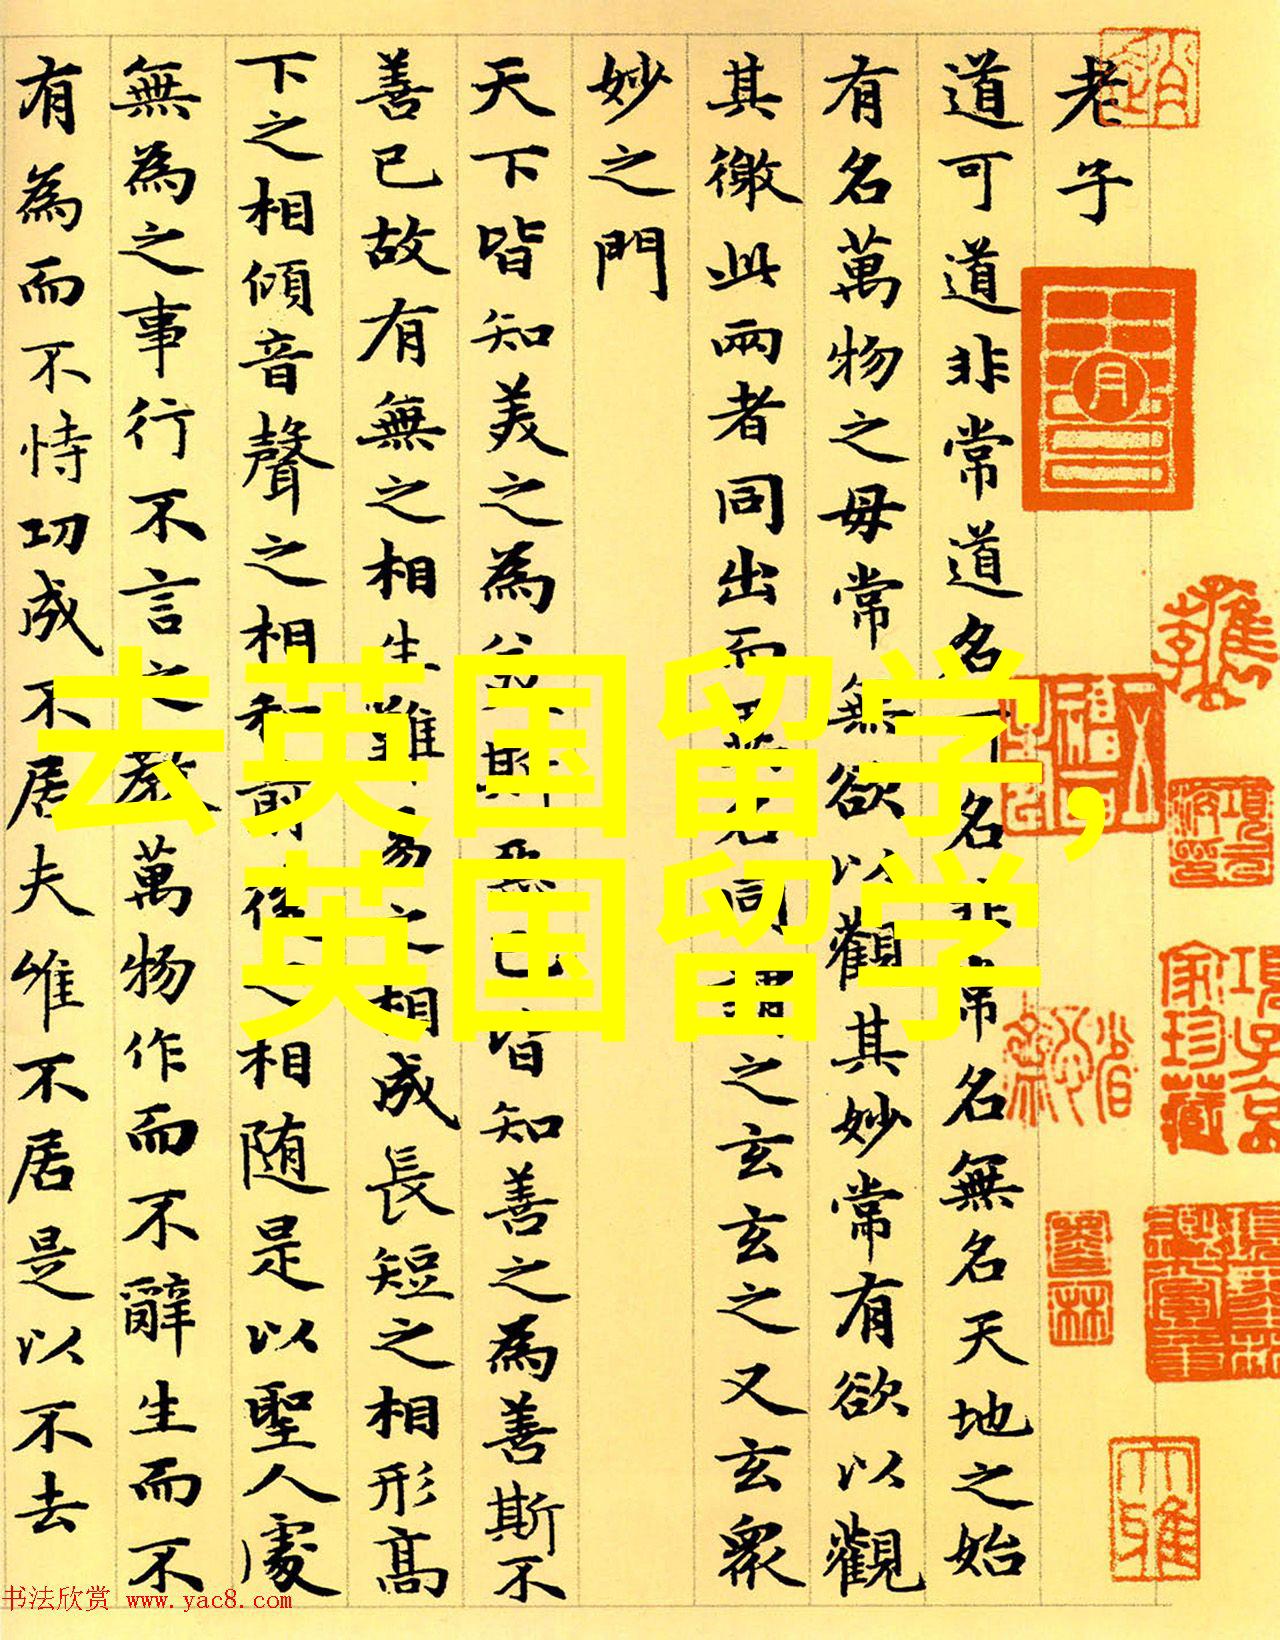 老子
道可道非常道名可名非常名無名天地之始
有名萬物之母常無欲以觀其妙常有欲以觀
其徼此兩者同出而異名同謂之玄玄之又玄眾
妙之門
天下皆知美之為美斯惡已皆知善之為善斯不
善已故有無之相生難易之相成長短之相形高
下之相傾音聲之相和前後之相随是以聖人處
無為之事行不言之教萬物作而不辭生而不
有為而不恃功成不居夫唯不居是以不去
去英国留学,
英国留学
书法欣赏 www.yac8.com